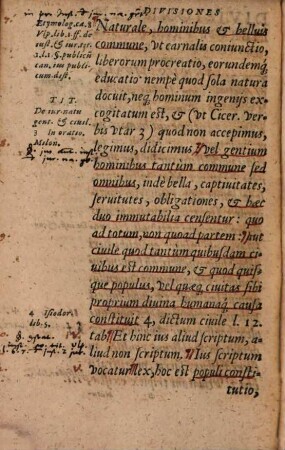 DIVISIONES
Naturale, hominibus & belluis
commune, vt carnalis coniunctio,
liberorum procreatio, eorundemq́;
educatio nempè quod sola natura
docuit, neq; hominum ingenijs ex-
cogitatum est, & (vt Cicer. ver-
bis vtár 3) quod non accepimus,
legimus, didicimus vel gentium
hominibus tantùm commune sed
omnibus, inde bella, captiuitates,
seruitutes, obligationes, & hæc
duo immutabilia censentur: quo
ad totum, non quoad partem: Aut
ciuile quod tantùm quibusdam ci-
uibus est commune, & quod quis-
que populus, vel quæq; ciuitas sibi
proprium diuina humanaq́; causa
constituit 4, dictum ciuile l. 12.
tab. Et hinc ius aliud scriptum, a-
liud non scriptum. Ius scriptum
vocatur lex, hoc est populi consti-
tutio,
Etymolog. ca. 3
Vlp. lib. 1. ff. de
iust. & iur.
publicum
TIT.
De iur. natu
gent. & ciuil.
3 In orat. pro
Milon.
4 Isiodor
lib. 5.